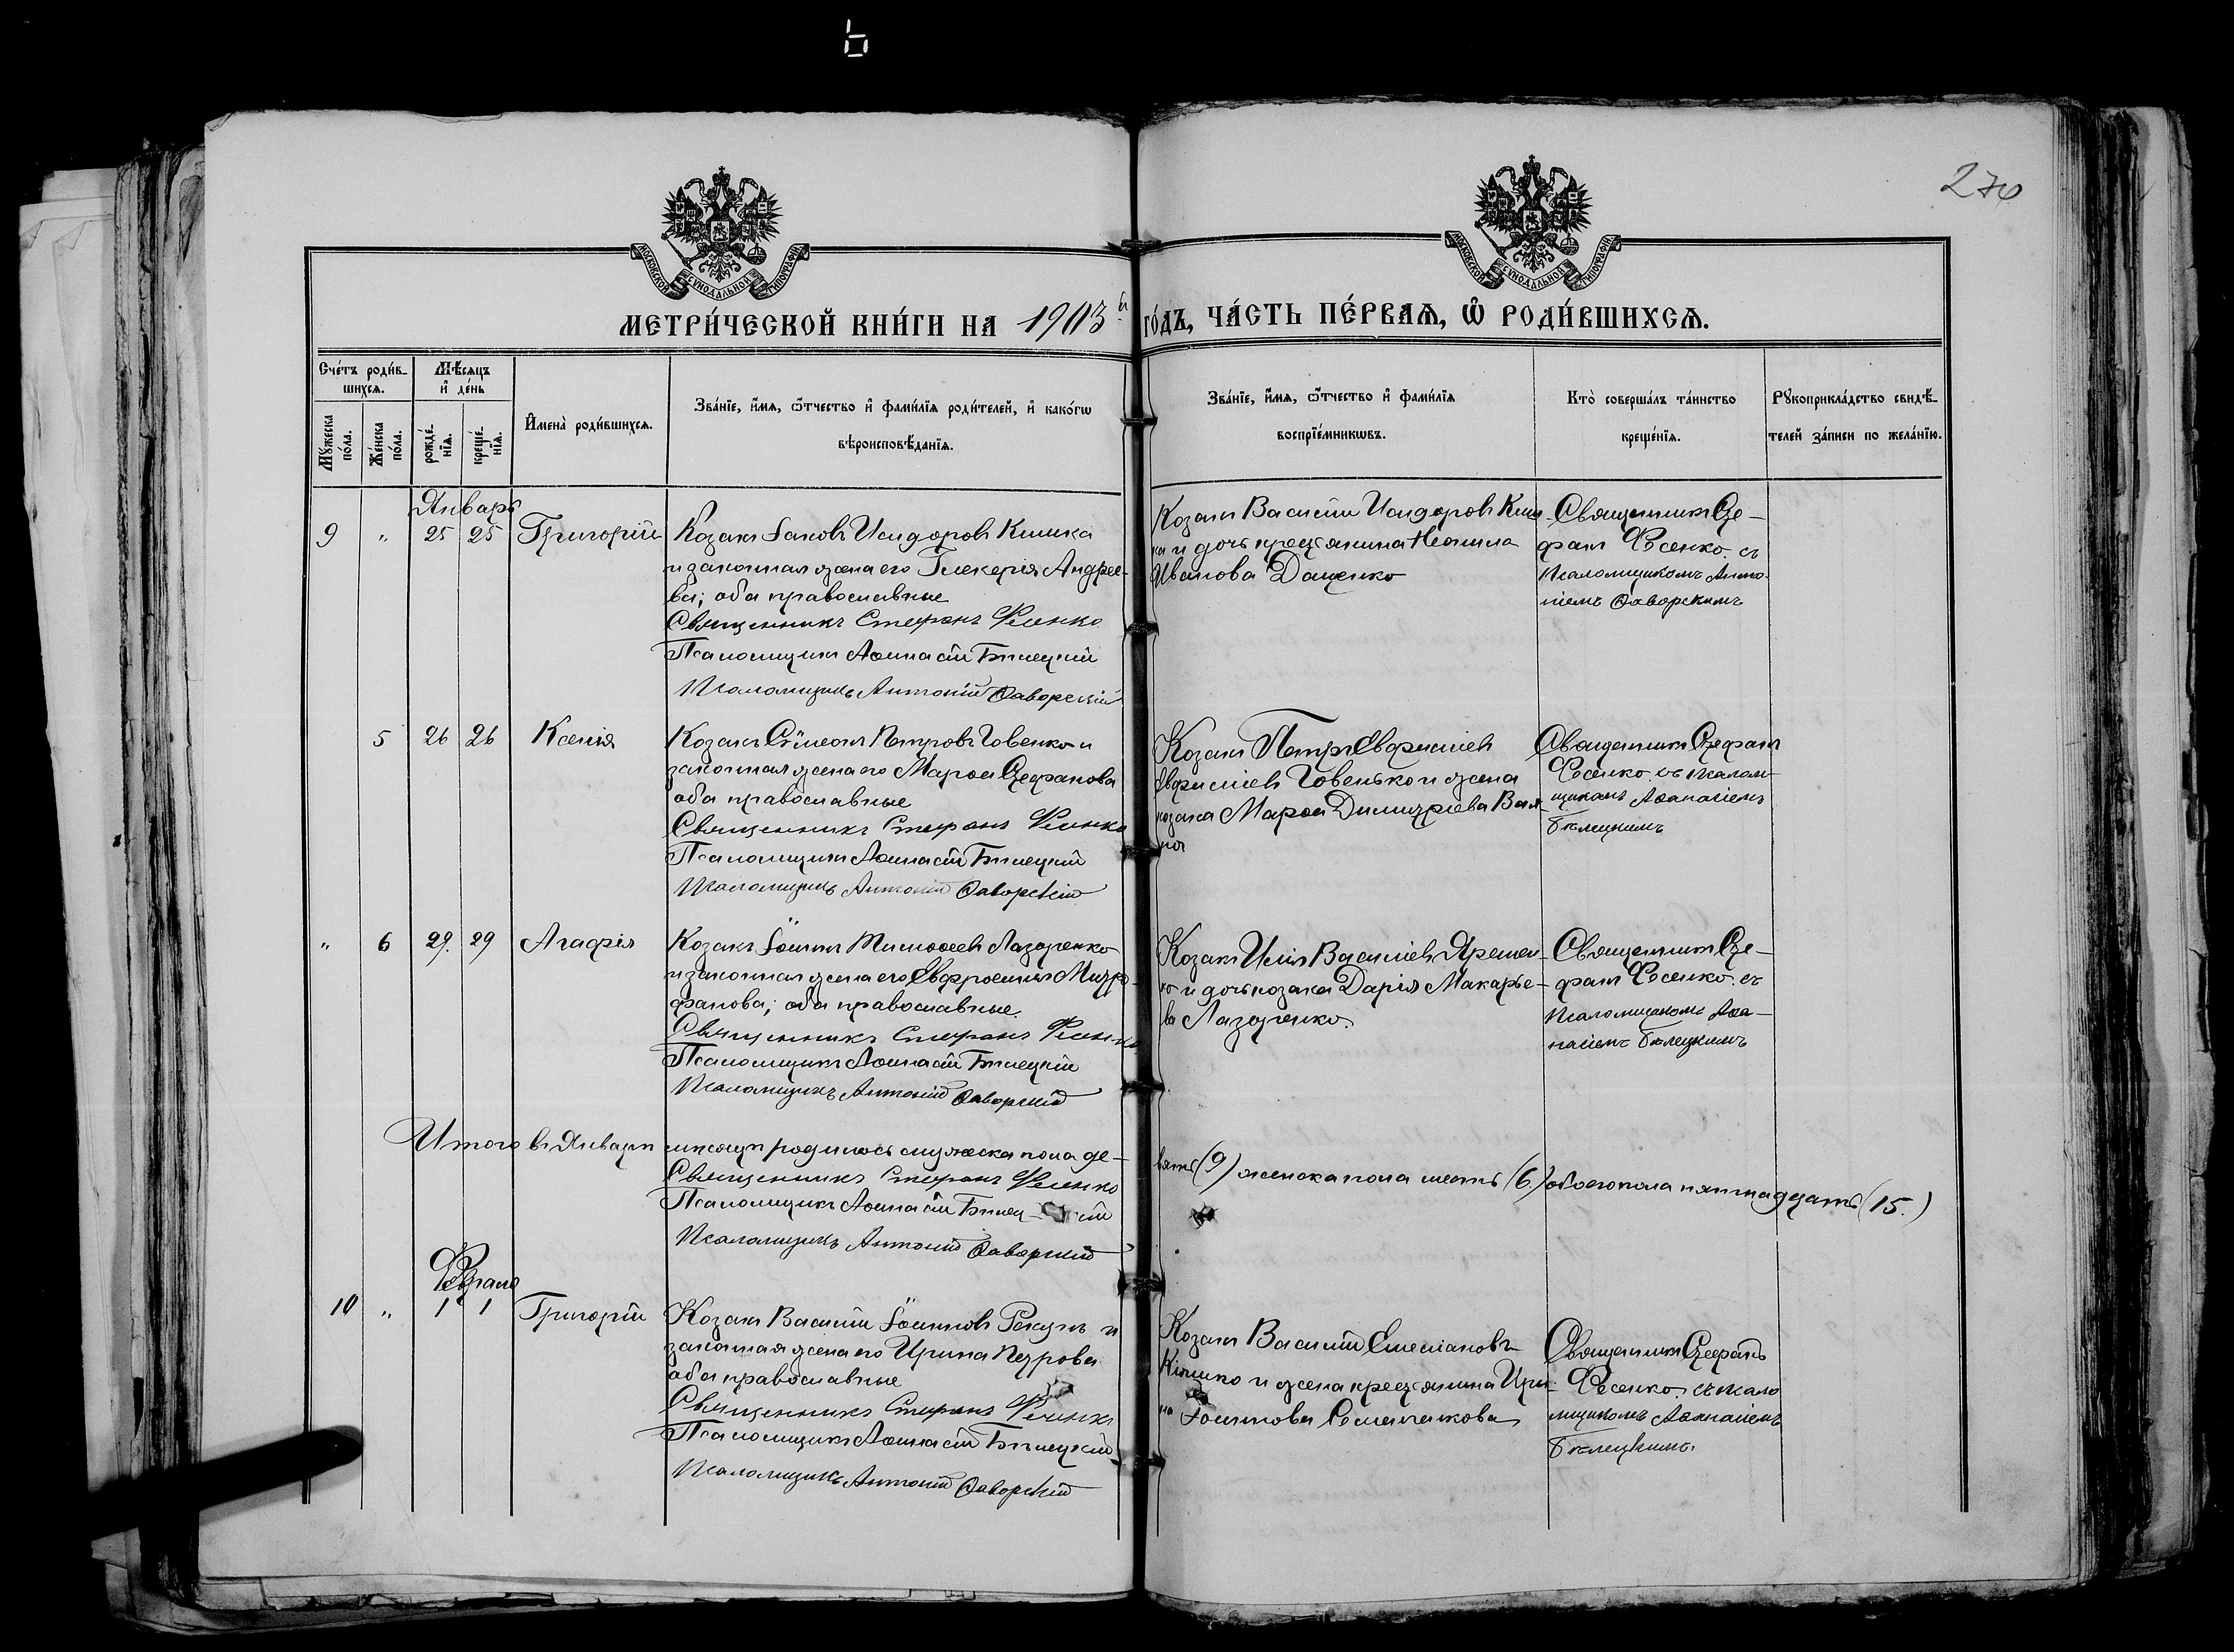 270
МОСКОВСКОЙ СѴНОДАЛЬНОЙ ТИПОГРАФІИ
МОСКОВСКОЙ СѴНОДАЛЬНОЙ ТИПОГРАФІИ
МЕТРИ́ЧЕСКОЙ КНИ́ГИ НА 1903й ГО́ДЪ, ЧА́СТЬ ПЕ́РВАѦ, Ѽ РОДИ́ВШИХСѦ.
Сче́тъ роди́в-
шихсѧ.
Мꙋжеска по́ла.
Же́нска по́ла.
Мѣ́сѧцъ
и҆ де́нь
рожде́-
нїѧ.
креще́-
нїѧ.
И҆мена̀ роди́вшихсѧ.
Зва́нїе, и҆́мѧ, ѻ҆́тчество и҆ фами́лїѧ роди́телей, и҆ како́гѡ
вѣроисповѣ́данїѧ.
Зва́нїе, и҆́мѧ, ѻ҆́тчество и҆ фами́лїѧ
воспрїе́мникѡвъ.
Кто̀ соверша́лъ та́инство
креще́нїѧ.
Рꙋкоприкла́дство свидѣ́-
телей за́писи по жела́нїю.
Январь
9 " 25 25 Григорій
Козакъ Іаковъ Исидоровъ Кишка
и законная жена его Гликерія Андрее-
ва; оба православные
Священникъ Стефанъ Фесенко
Псаломщикъ Аѳанасій Бѣлецкій
Псаломщикъ Антоній Ѳаворскій
Козакъ Василій Исидоровъ Киш-
ка и дочь крестьянина Неонила
Иванова Даценко
Священникъ Сте-
фанъ Фесенко съ
псаломщикомъ Анто-
ніемъ Ѳаворскимъ
5 26 26 Ксенія
Козакъ Сѵмеонъ Петровъ Говенко и
законная жена его Марѳа Стефанова
оба православные
Священникъ Стефанъ Фесенко
Псаломщикъ Аѳанасій Бѣлецкій
Псаломщикъ Антоній Ѳаворскій
Козакъ Петръ
Говенько и жена
козака Марѳа Димитріева
Священникъ Стефанъ
Фесенко съ псалом-
щикомъ Аѳанасіемъ
Бѣлецкимъ
" 6 29. 29 Агафія
Козакъ Іоаннъ Тимоѳеевъ Лазоренко
и законная жена его Евфросинія Митро-
фанова; оба православные.
Священникъ Стефанъ Фесенко
Псаломщикъ Аѳанасій Бѣлецкій
Псаломщикъ Антоній Ѳаворскій
Козакъ Илія Васильевъ Яремен-
ко и дочь козака Дарія Макарье-
ва Лазоренко.
Священникъ Сте-
фанъ Фесенко съ
псаломщикомъ Аѳа-
насіемъ Бѣлецкимъ
Итого въ Январѣ мѣсяцѣ родилось мужеска пола де-
вять (9) женска пола шесть (6) обоего пола пятнадцать (15.)
Священникъ Стефанъ Фесенко
Псаломщикъ Аѳанасій Бѣлецкій
Псаломщикъ Антоній Ѳаворскій
Февраль
10 " 1 1 Григорій
Козакъ Василій Іоанновъ Рекунъ и
законная жена его Ирина Петрова
оба православные
Священникъ Стефанъ Фесенко
Псаломщикъ Аѳанасій Бѣлецкій
Псаломщикъ Антоній Ѳаворскій
Козакъ Василій Емеліановъ
и жена крестьянина Ири-
на Іоаннова
Священникъ Стефанъ
Фесенко съ псало-
мщикомъ Аѳанасіемъ
Бѣлецкимъ.